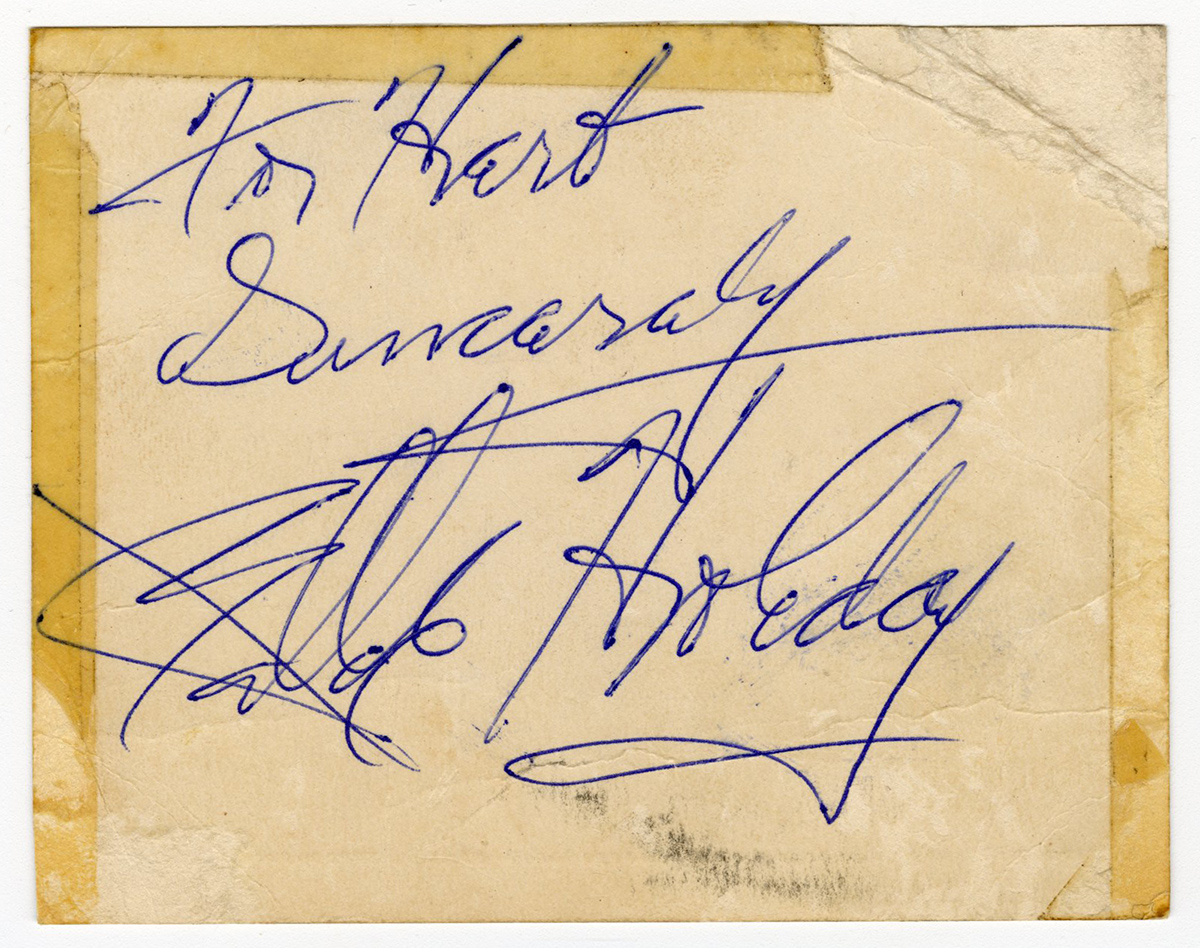 For Hart
Sincerely
Billie Holiday